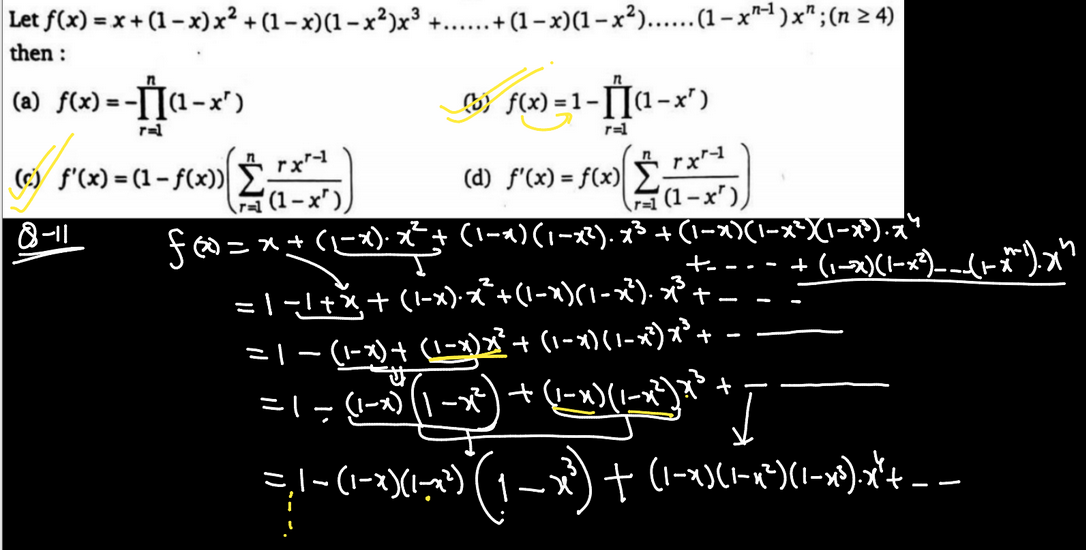 Let f(x) = x + (1 – x) x² + (1 – x)(1 – x²)x³ + ...... + (1 – x)(1 – x²)......(1 – xⁿ⁻¹) xⁿ ; (n ≥ 4)
then :
(a) f(x) = –∏ⁿᵣ₌₁(1 – xʳ)
(b) f(x) = 1 – ∏ⁿᵣ₌₁(1 – xʳ)
(c) f'(x) = (1 – f(x)) (∑ⁿᵣ₌₁ r xʳ⁻¹ / (1 – xʳ))
(d) f'(x) = f(x) (∑ⁿᵣ₌₁ r xʳ⁻¹ / (1 – xʳ))
Q-11
f(x) = x + (1-x)·x² + (1-x)(1-x²)·x³ + (1-x)(1-x²)(1-x³)·x⁴
+ - - - - + (1-x)(1-x²)---(1-xⁿ⁻¹)·xⁿ
= 1 - 1 + x + (1-x)·x² + (1-x)(1-x²)·x³ + - - -
= 1 - (1-x) + (1-x)x² + (1-x)(1-x²)x³ + - ———
= 1 - (1-x)(1-x²) + (1-x)(1-x²)x³ + - ———
= 1 - (1-x)(1-x²)(1-x³) + (1-x)(1-x²)(1-x³)·x⁴ + - -